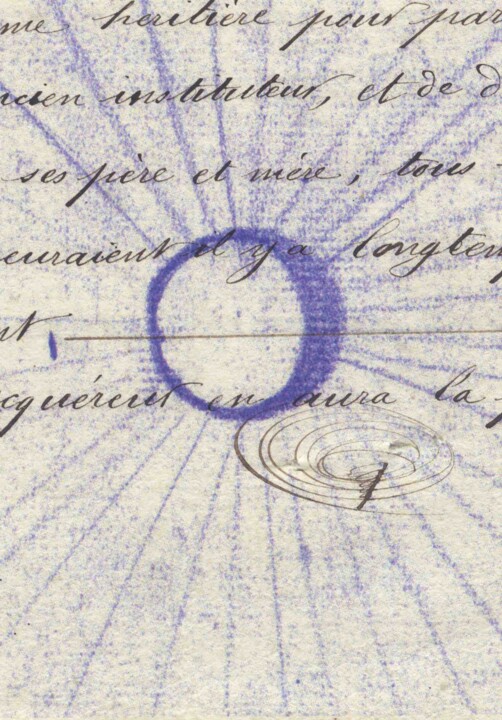 me héritière pour par
ncien instituteur, et de d
ses père et mère, tous
euraient il y a longtem
nt
cquéreur en aura la p